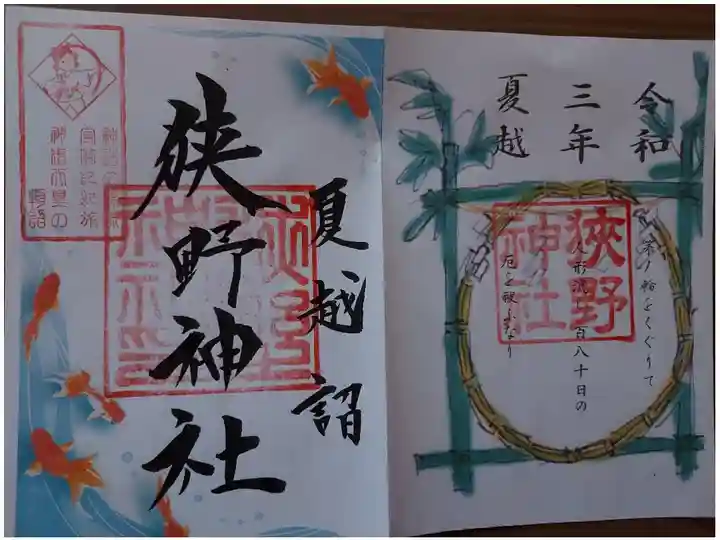 令和
三年
夏越
茅ノ輪をくぐりて
人形流し百八十日の
厄を祓ふなり
狹野
神社
夏越詣
狭野神社